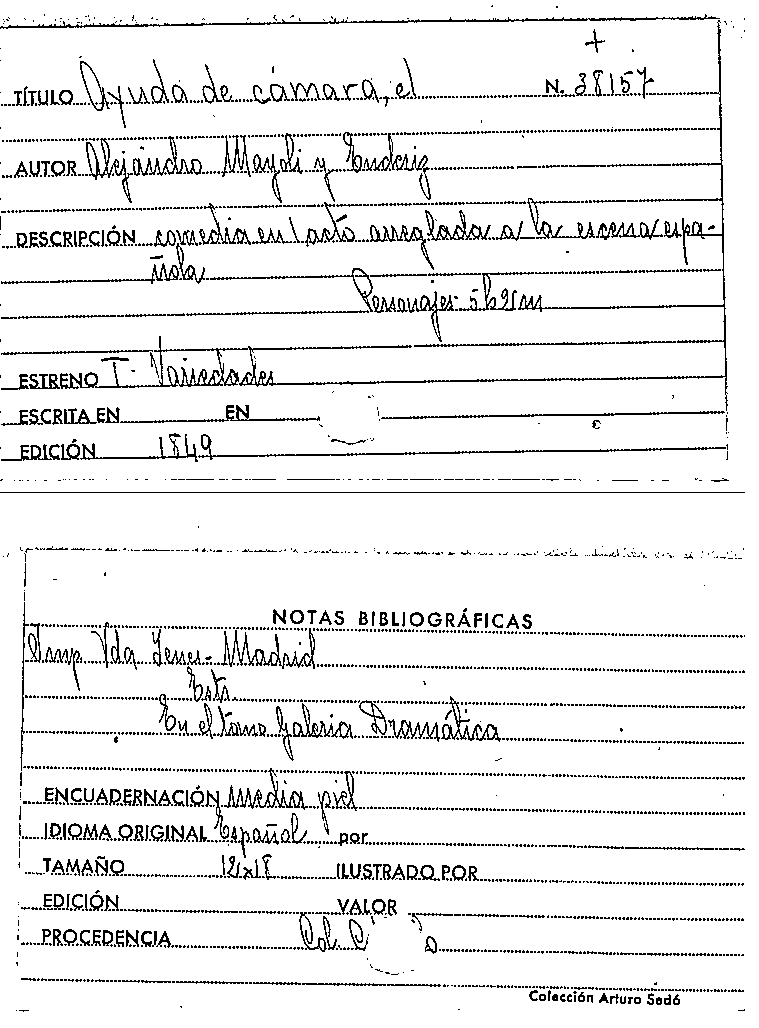 +
TÍTULO Ayuda de cámara, el N. 38157
AUTOR Alejandro Mayoli y Enderiz
DESCRIPCIÓN comedia en 1 acto arreglada a la escena espa-
ñola
Personajes- 5h 2m
ESTRENO T. Variedades
ESCRITA EN EN
EDICIÓN 1849
NOTAS BIBLIOGRÁFICAS
Imp Vda Yenes- Madrid
En el tomo Galeria Dramática
ENCUADERNACIÓN media piel
IDIOMA ORIGINAL Español por
TAMAÑO 12x18 ILUSTRADO POR
EDICIÓN VALOR
PROCEDENCIA Col. C
Colección Arturo Sedó